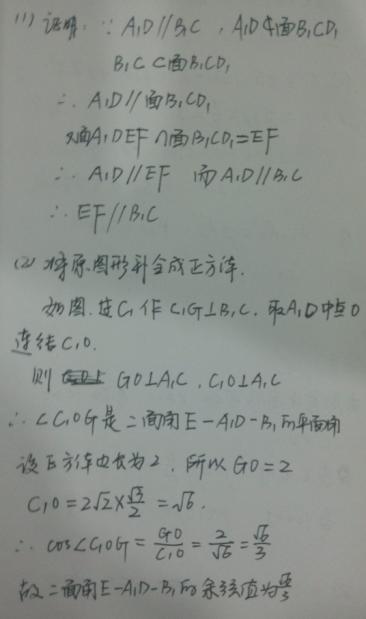 (1) 证明: ∵ A₁D∥B₁C , A₁D⊄面B₁CD₁
B₁C⊂面B₁CD₁
∴ A₁D∥面B₁CD₁
又面A₁DEF∩面B₁CD₁=EF
∴ A₁D∥EF 而A₁D∥B₁C
∴ EF∥B₁C
(2) 将原图形补全成正方体.
如图.过C₁作C₁G⊥B₁C. 取A₁D中点O
连结C₁O.
则 GO⊥A₁C , C₁O⊥A₁C
∴ ∠C₁OG是二面角E-A₁D-B₁的平面角
设正方体边长为2 , 所以GO=2
C₁O=2√2×√3/2=√6.
∴ cos∠C₁OG=GO/C₁O=2/√6=√6/3
故二面角E-A₁D-B₁的余弦值为√6/3